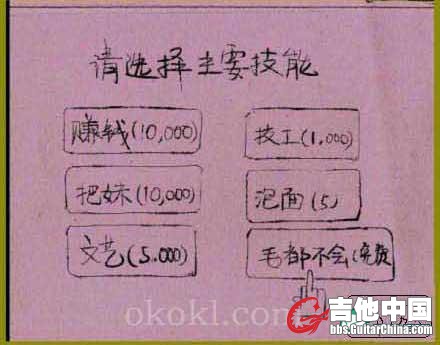 请选择主要技能
赚钱(10,000)
技工(1,000)
把妹(10,000)
泡面(5)
文艺(5.000)
毛都不会(免费
okokl.com
吉他中国
bbs.GuitarChina.com